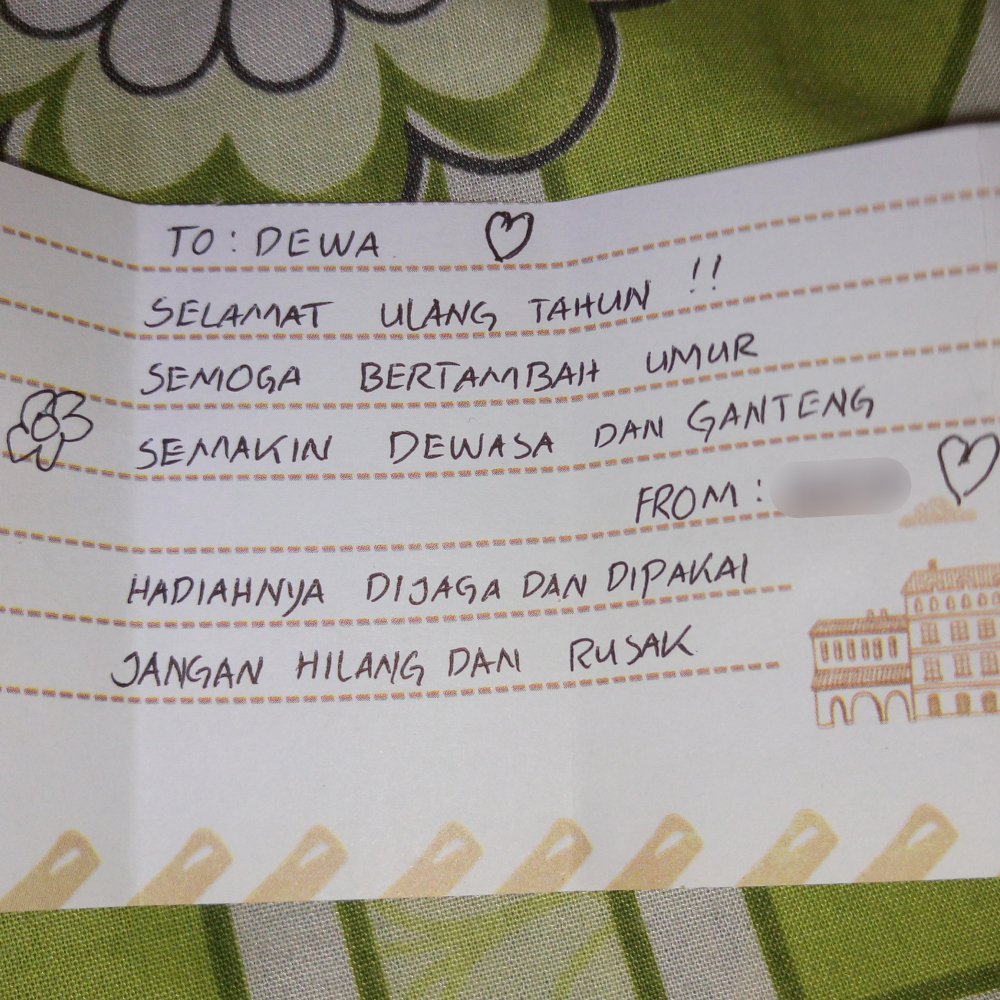 TO : DEWA
SELAMAT ULANG TAHUN !!
SEMOGA BERTAMBAH UMUR
SEMAKIN DEWASA DAN GANTENG
FROM :
HADIAHNYA DIJAGA DAN DIPAKAI
JANGAN HILANG DAN RUSAK